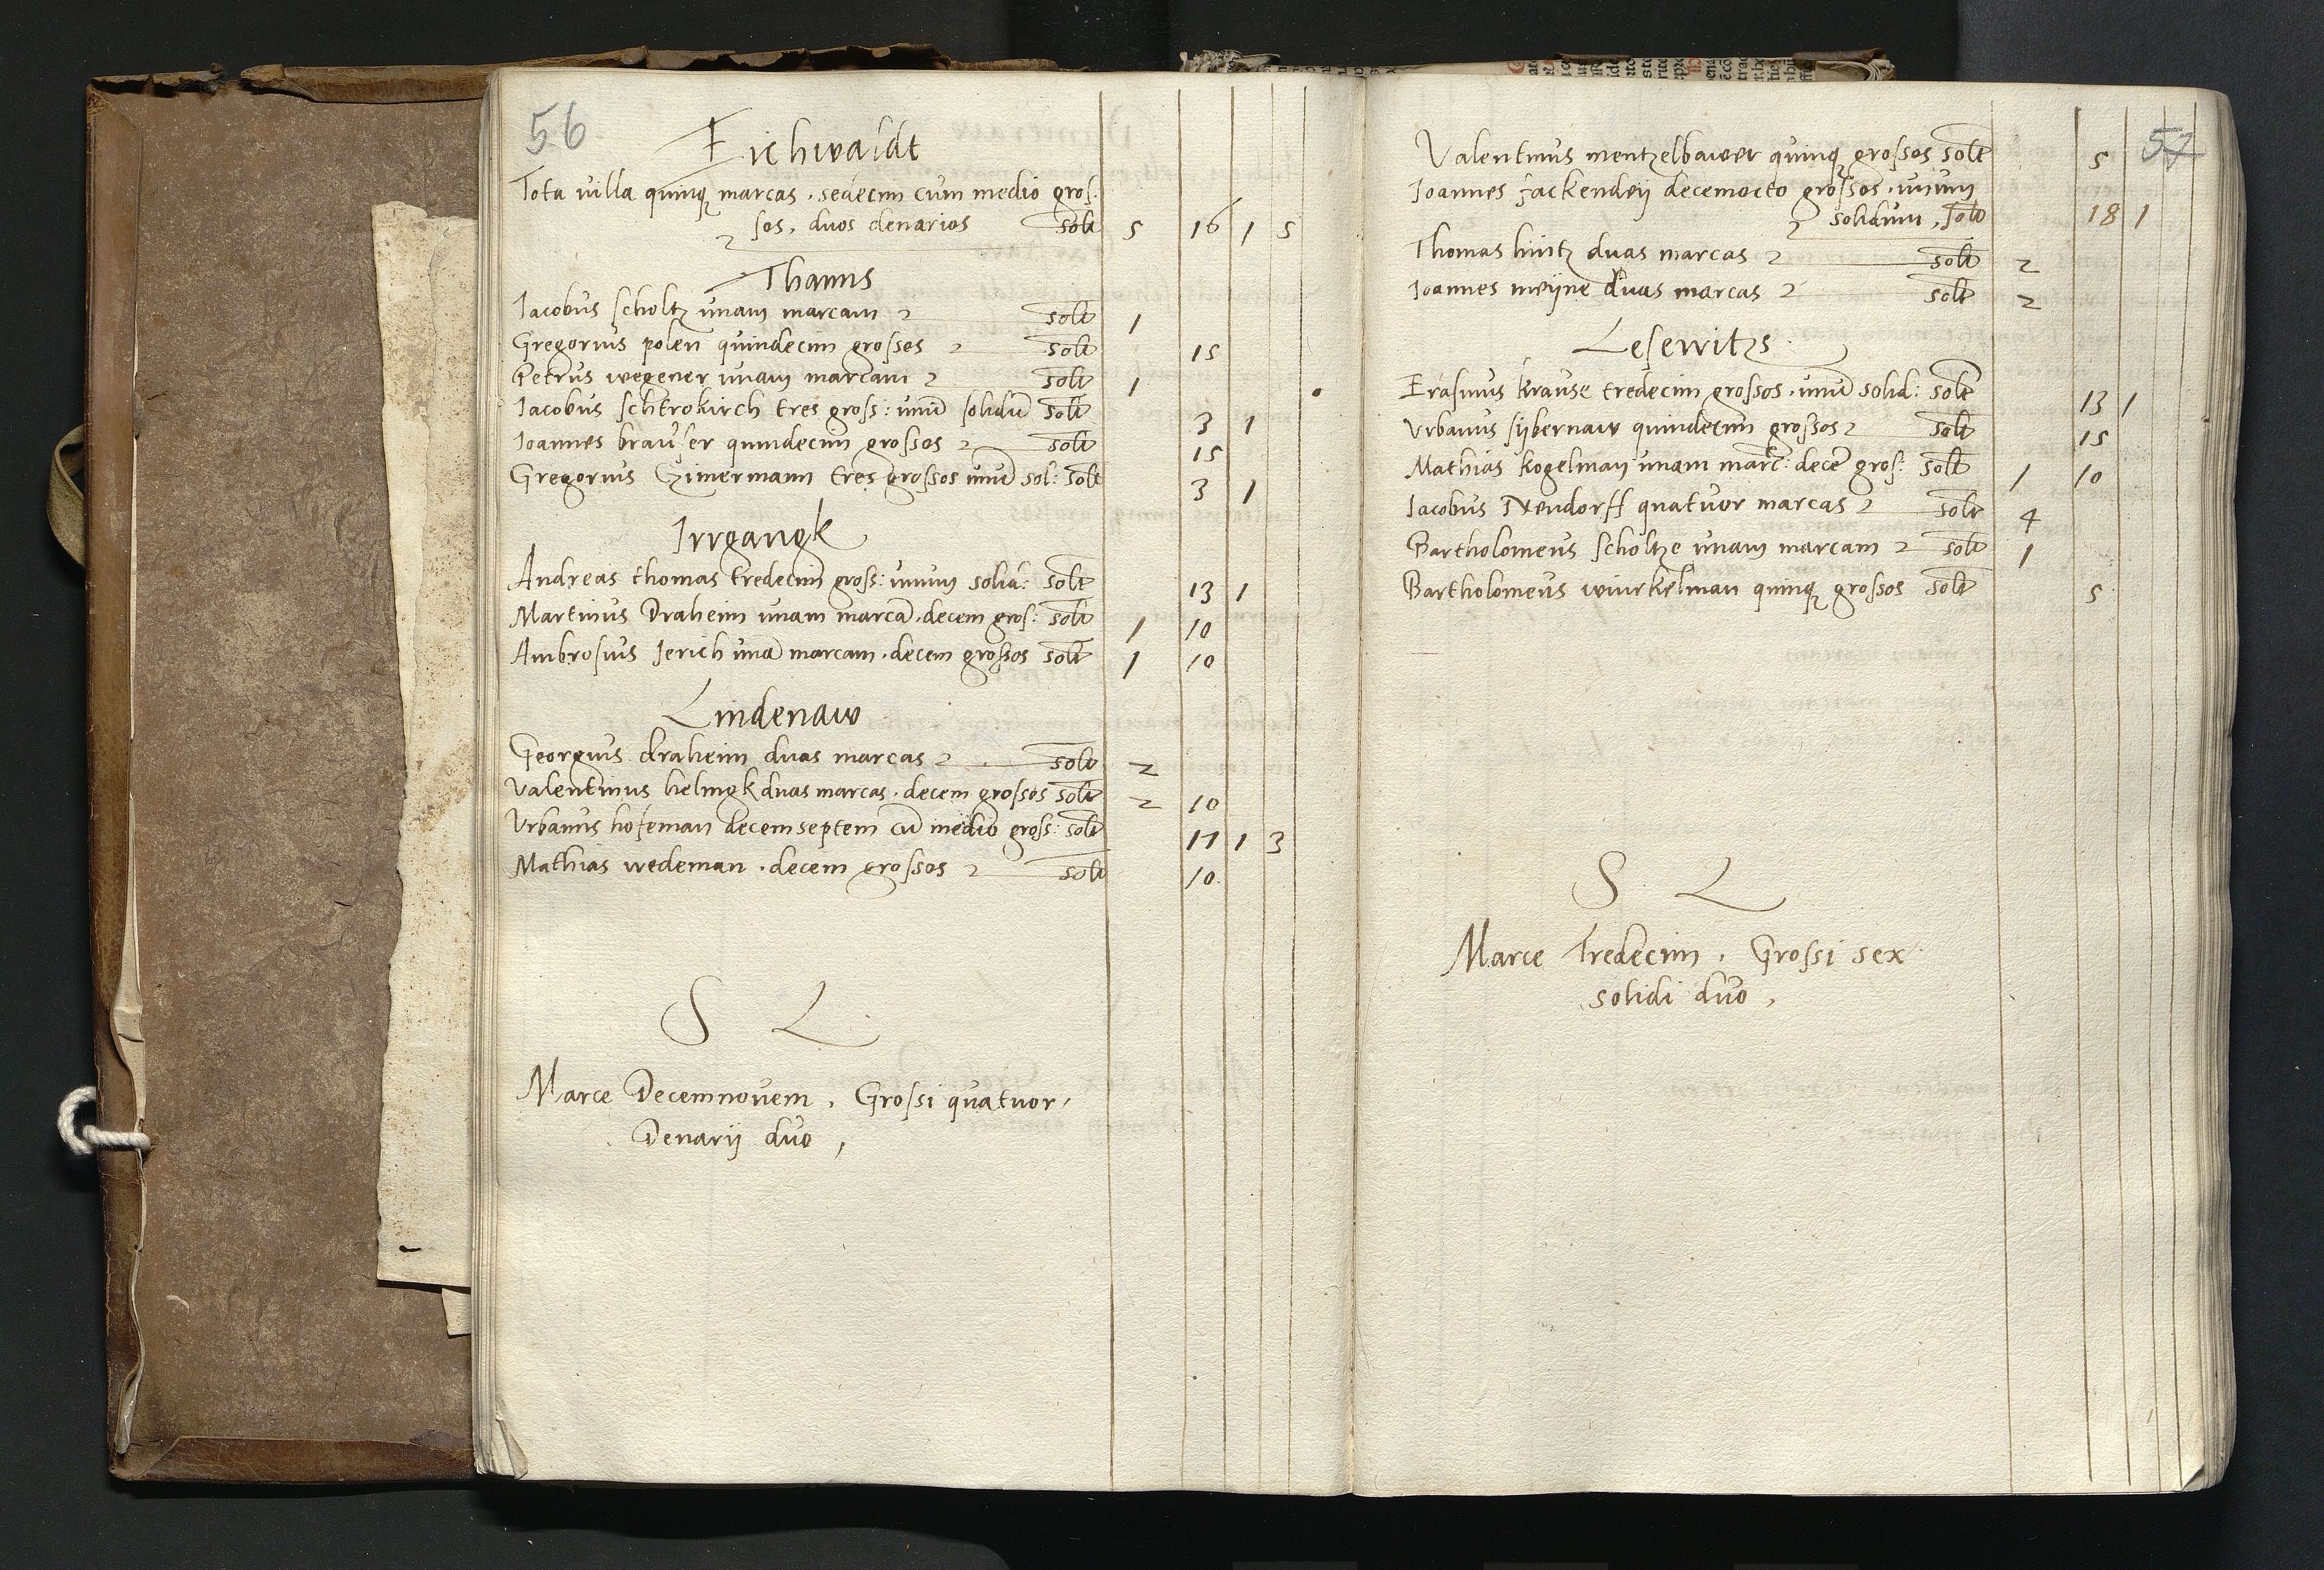 56
Eichwaldt
Tota villa quinq marcas . sedecim cum medio gros:
sos, duos denarios solt 5 16 1 5
Thanns
Iacobus scholtz unam marcam solt 1
Gregorius polen quindecim grossos solt 15
Petrus wegener unam marcam solt 1
Iacobus schtrokirch tres gross: unū solidū solt 3 1
Ioannes brauser quindecim grossos solt 15
Gregorius Czimermann tres grossos unū sol: solt 3 1
Irrgangk
Andreas thomas tredecim gross: unum solid: solt 13 1
Martinus Draheim unam marcā . decem gros: solt 1 10
Ambrosius Ierich unā marcam . decem grossos solt 1 10
Lindenaw
Georgius draheim duas marcas solt 2
Valentinus helingk duas marcas . decem grossos solt 2 10
Urbanus hofeman decemseptem cū medio gross: solt 17 1 3
Mathias wedeman . decem grossos solt 10
S L
Marce Decemnovem, Grossi quatuor,
Denarij duo,
57
Valentinus mentzelbawer quinq grossos solt 5
Ioannes jackendeij decemocto grossos . unum
solidum, solt 18 1
Thomas hintz duas marcas solt 2
Ioannes meijne duas marcas solt 2
Lesewitzs
Erasmus krause tredecim grossos . unū solid: solt 13 1
Urbanus sijbernaw quindecim grossos solt 15
Mathias kogelman unam marc: decē gros: solt 1 10
Iacobus Nendorff quatuor marcas solt 4
Bartholomeus scholtze unam marcam solt 1
Bartholomeus winrkelman quinq grossos solt 5
S L
Marce Tredecim, Grossi sex
solidi duo,